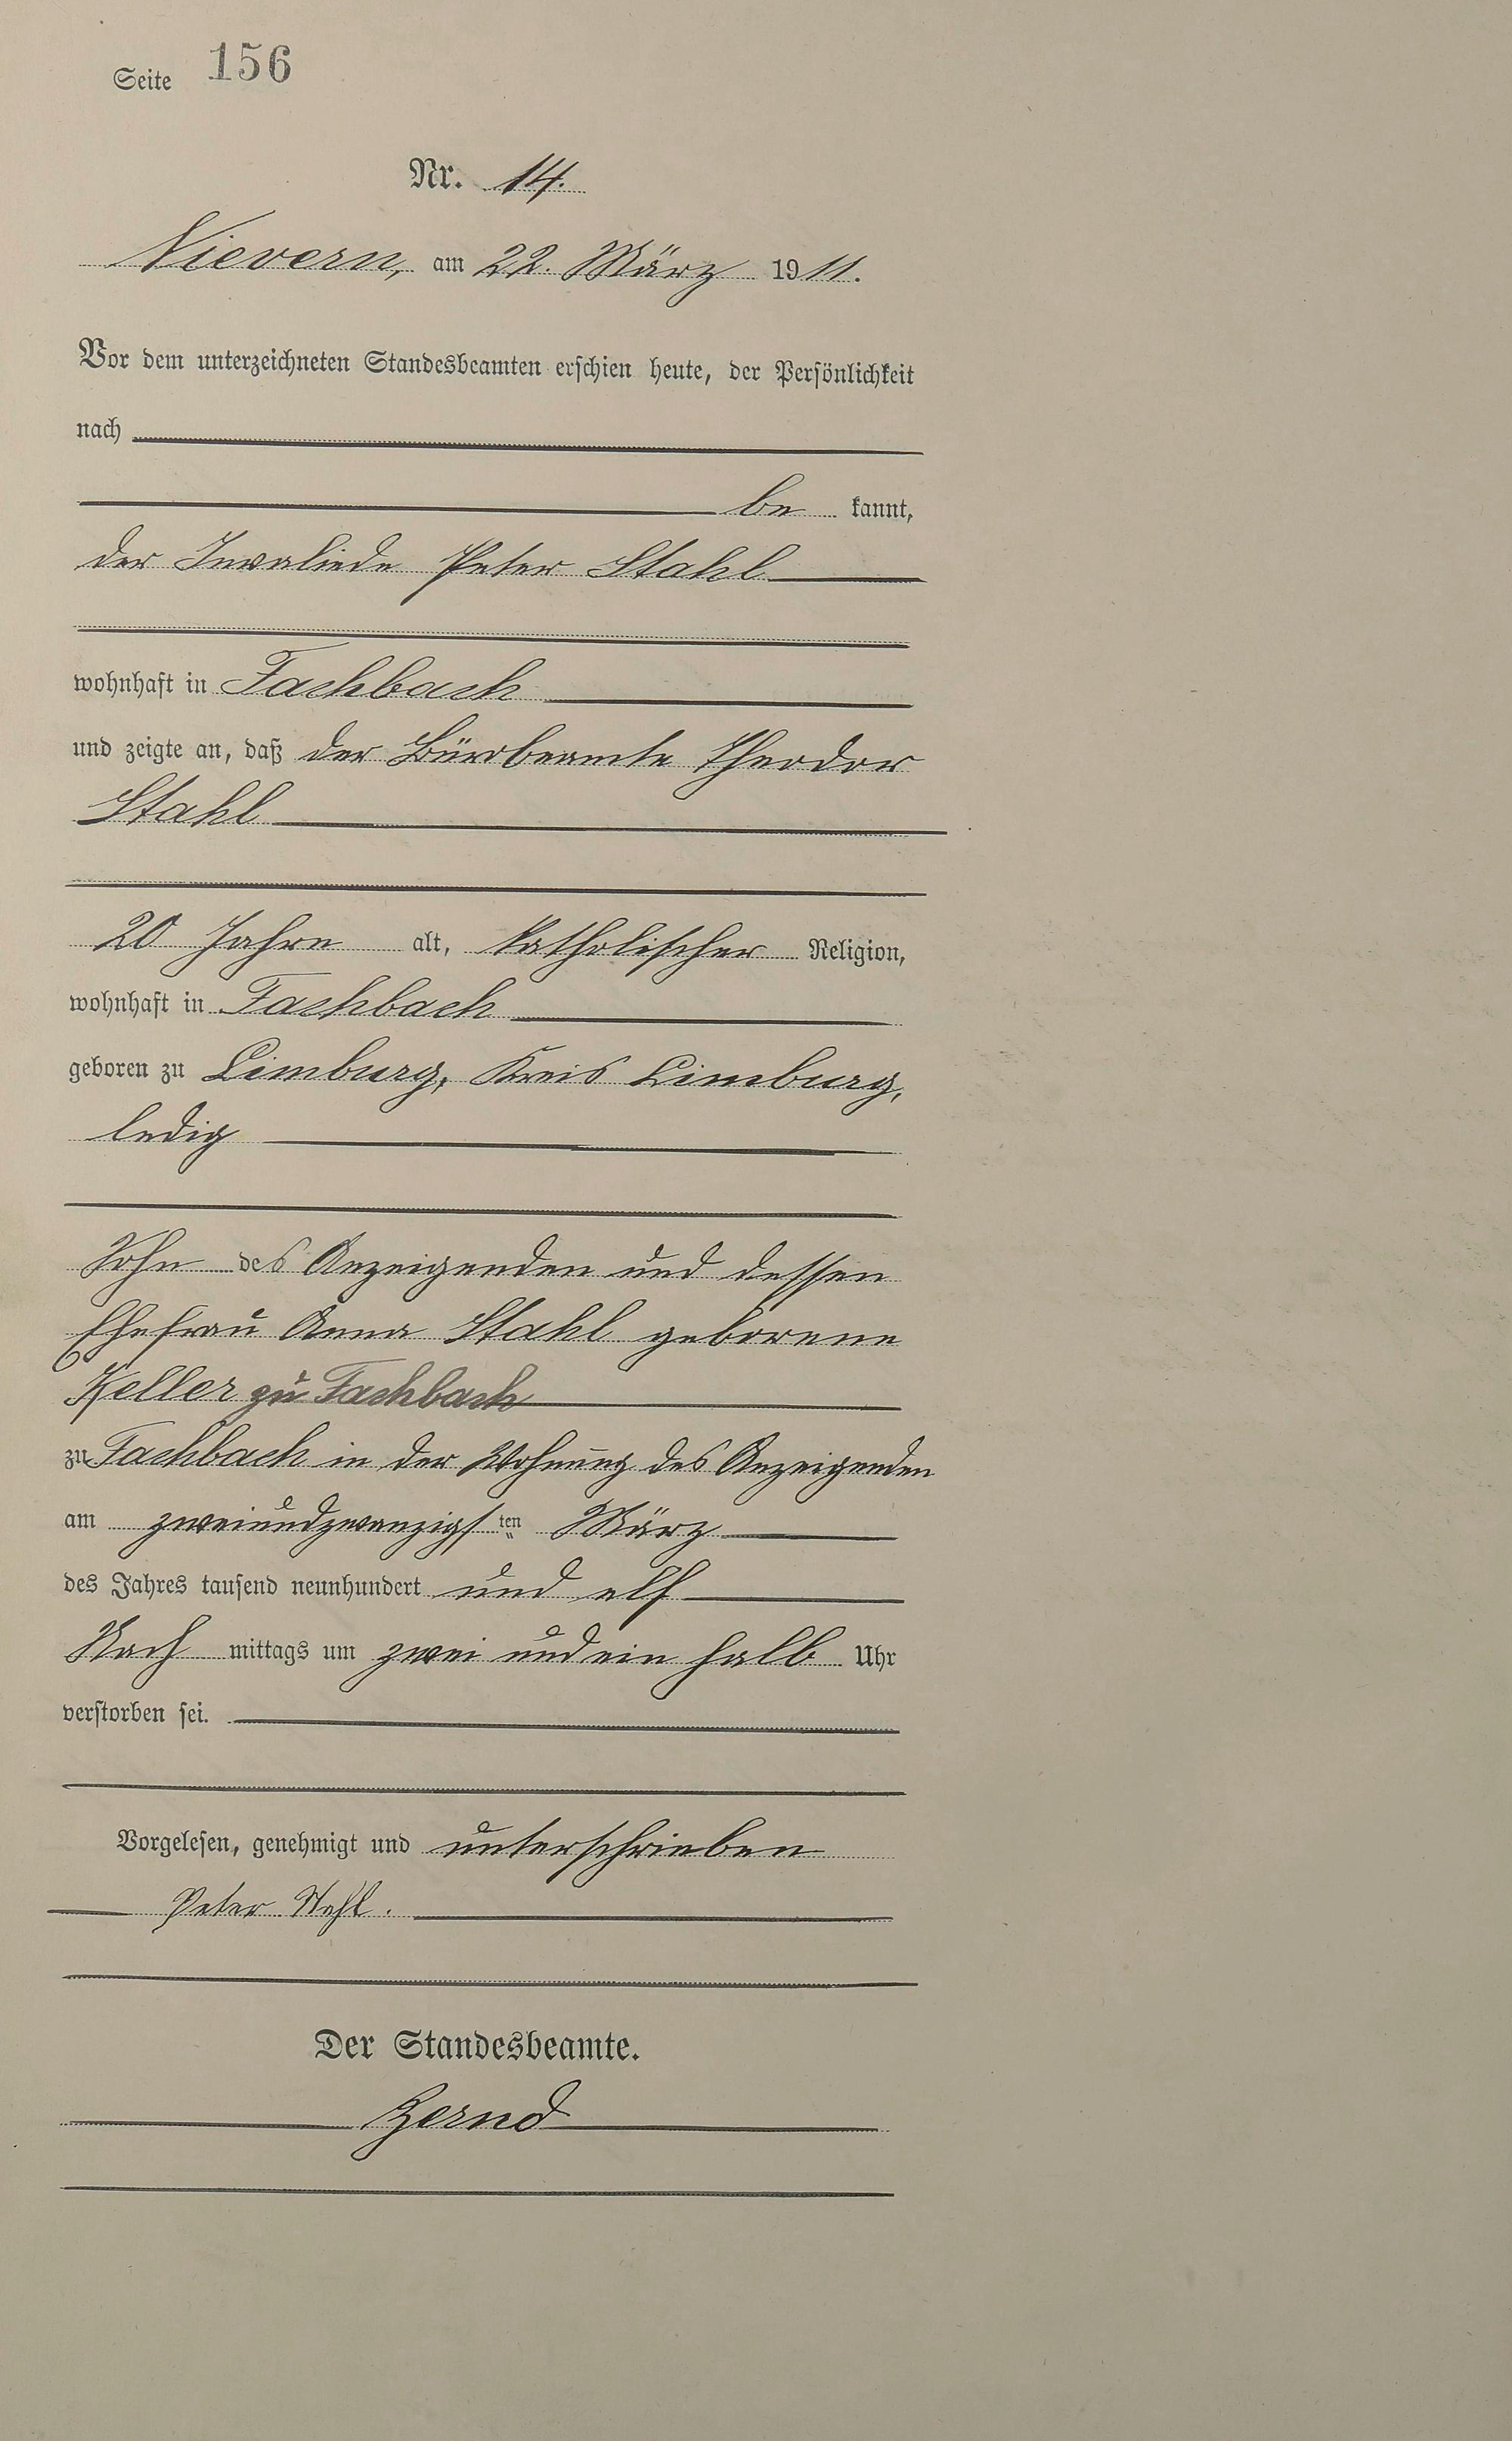 Seite 156
Nr. 14.
Nievern, am 22. März 1911.
Vor dem unterzeichneten Standesbeamten erschien heute, der Persönlichkeit
nach
be kannt,
der Invaliede Peter Stahl
wohnhaft in Fachbach
und zeigte an, daß der Bürobeamte Theodor
Stahl
20 Jahre alt, katholischer Religion,
wohnhaft in Fachbach
geboren zu Limburg, Kreis Limburg,
ledig
Sohn des Anzeigenden und dessen
Ehefrau Anna Stahl geborene
Keller zu Fachbach
zu Fachbach in der Wohnung des Anzeigenden
am zweiundzwanzigsten März
des Jahres tausend neunhundert und elf
Nach mittags um zwei und ein halb Uhr
verstorben sei.
Vorgelesen, genehmigt und unterschrieben
Peter Stahl.
Der Standesbeamte.